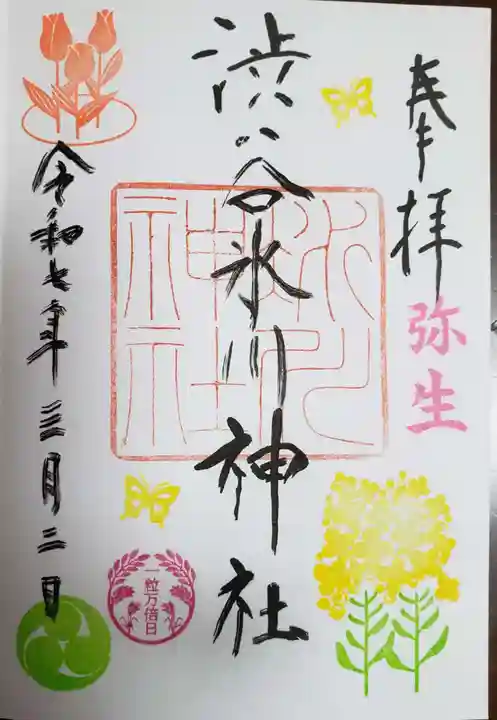 奉拝
弥生
渋谷氷川神社
氷川
神社
令和七年三月三日
一粒万倍日